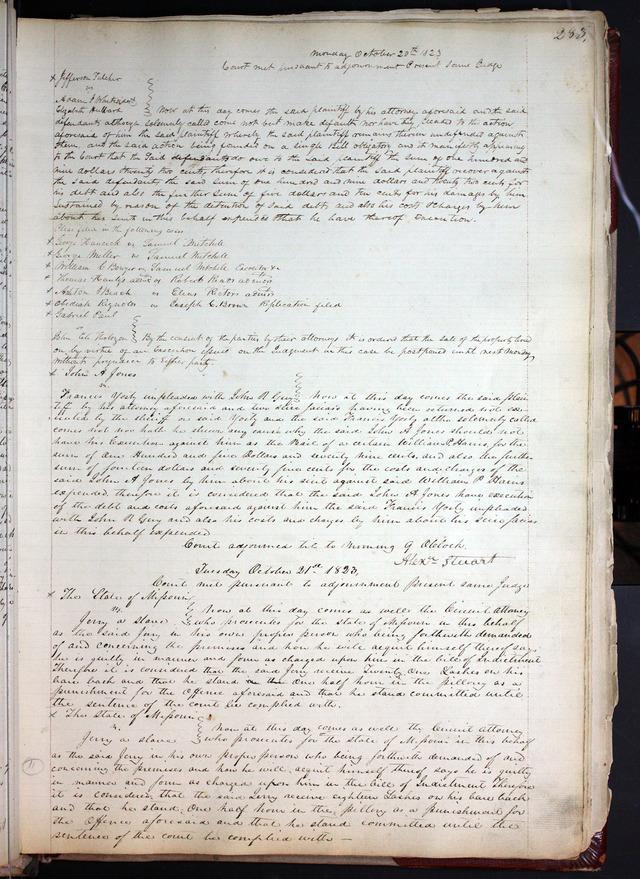 283,
Monday October 20th 1823
Court met pursuant to adjournment Present Same Judge
x Jefferson Fulcher
vs
Adam
Elizabeth Hubbard Now at this day comes the said plaintiff by his attorney aforesaid and the said
defendants although solemnly called come not but make default nor have they pleaded to the action
aforesaid of him the said plaintiff whereby the said plaintiff remains therein undefended against
them, and the said action being founded on a single Bill obligatory and it manifestly appearing
to the Court that the said defendants do owe to the said plaintiff the sum of one hundred and
nine dollars & twenty two cents, therefore it is considered that the said plaintiff recover against
the said defendants the said sum of one hundred and nine dollars and twenty two cents for
his debt and also the further sum of five dollars and ten cents for his damages by him
sustained by reason of the detention of said debt, and also his costs & charges by him
about his suit in this behalf expended & that he have thereof Execution.
Pleas filed in the following cases
x George Hancock vs Samuel Mitchell
x George Miller vs Samuel Mitchell
x William C Bowyer vs Samuel Mitchell Executor &c
x Thomas admr vs Robert admrs
x Ashton vs Elias Rectors admrs
x Obediah Reynolds vs Joseph C. Brown Replication filed
x Gabriel Paul
vs
John By the consent of the parties by their attorneys it is ordered that the sale of the property levied
on by virtue of an Execution issued on the Judgment in this case be postponed until next Monday
without prejudice to Either party.
x John A Jones
vs.
Francis Yosty impleaded with John R Guy Now at this day comes the said plain
tiff by his attorney aforesaid and two scire facias having been returned not exe-
cuted by the sheriff on said Yosty and the said Francis Yosty altho solemnly called
comes not nor hath he shewn any cause why the said John A Jones should not
have his Execution against him as the Bail of a certain William P Harris for the
sum of One Hundred and five Dollars and seventy nine cents, and also the further
sum of fourteen dollars and seventy five cents for the costs and charges of the
said John A Jones by him about his suit against said William P Harris
expended, therefore it is considered that the said John A Jones have execution
of the debt and costs aforesaid against him the said Francis Yosty impleaded
with John R Guy and also his costs and charges by him about his scire facias
in this behalf Expended
Court adjourned til to Morning 9 OClock.
Alexr Stuart
Tuesday October 21st 1823,
Court met pursuant to adjournment Present same Judge
x The State of Missouri
vs.
Jerry a slave Now at this day comes as well the Circuit Attorney
who prosecutes for the state of Missouri in this behalf
as the said Jerry in his own proper person who being forthwith demanded
of and concerning the premises and how he will acquit himself thereof says
he is guilty in manner and form as charged upon him in the bill of Indictment
therefore it is considered that the said Jerry receive Twenty One Lashes on his
bare back and that he stand One half hour in the pillory as a
punishment for the offence aforesaid and that he stand committed until
the sentence of the court be complied with.
x The State of Missouri
vs.
Jerry a slave Now at this day comes as well the Circuit Attorney
who prosecutes for the state of Missouri in this behalf
as the said Jerry in his own proper person who being forthwith demanded of and
concerning the premises and how he will acquit himself thereof says he is guilty
in manner and form as charged upon him in the bill of Indictment therefore
it is considered that the said Jerry receive eighteen Lashes on his bare back
and that he stand One half hour in the pillory as a punishment for
the Offence aforesaid and that he stand committed until the
sentence of the court be complied with —